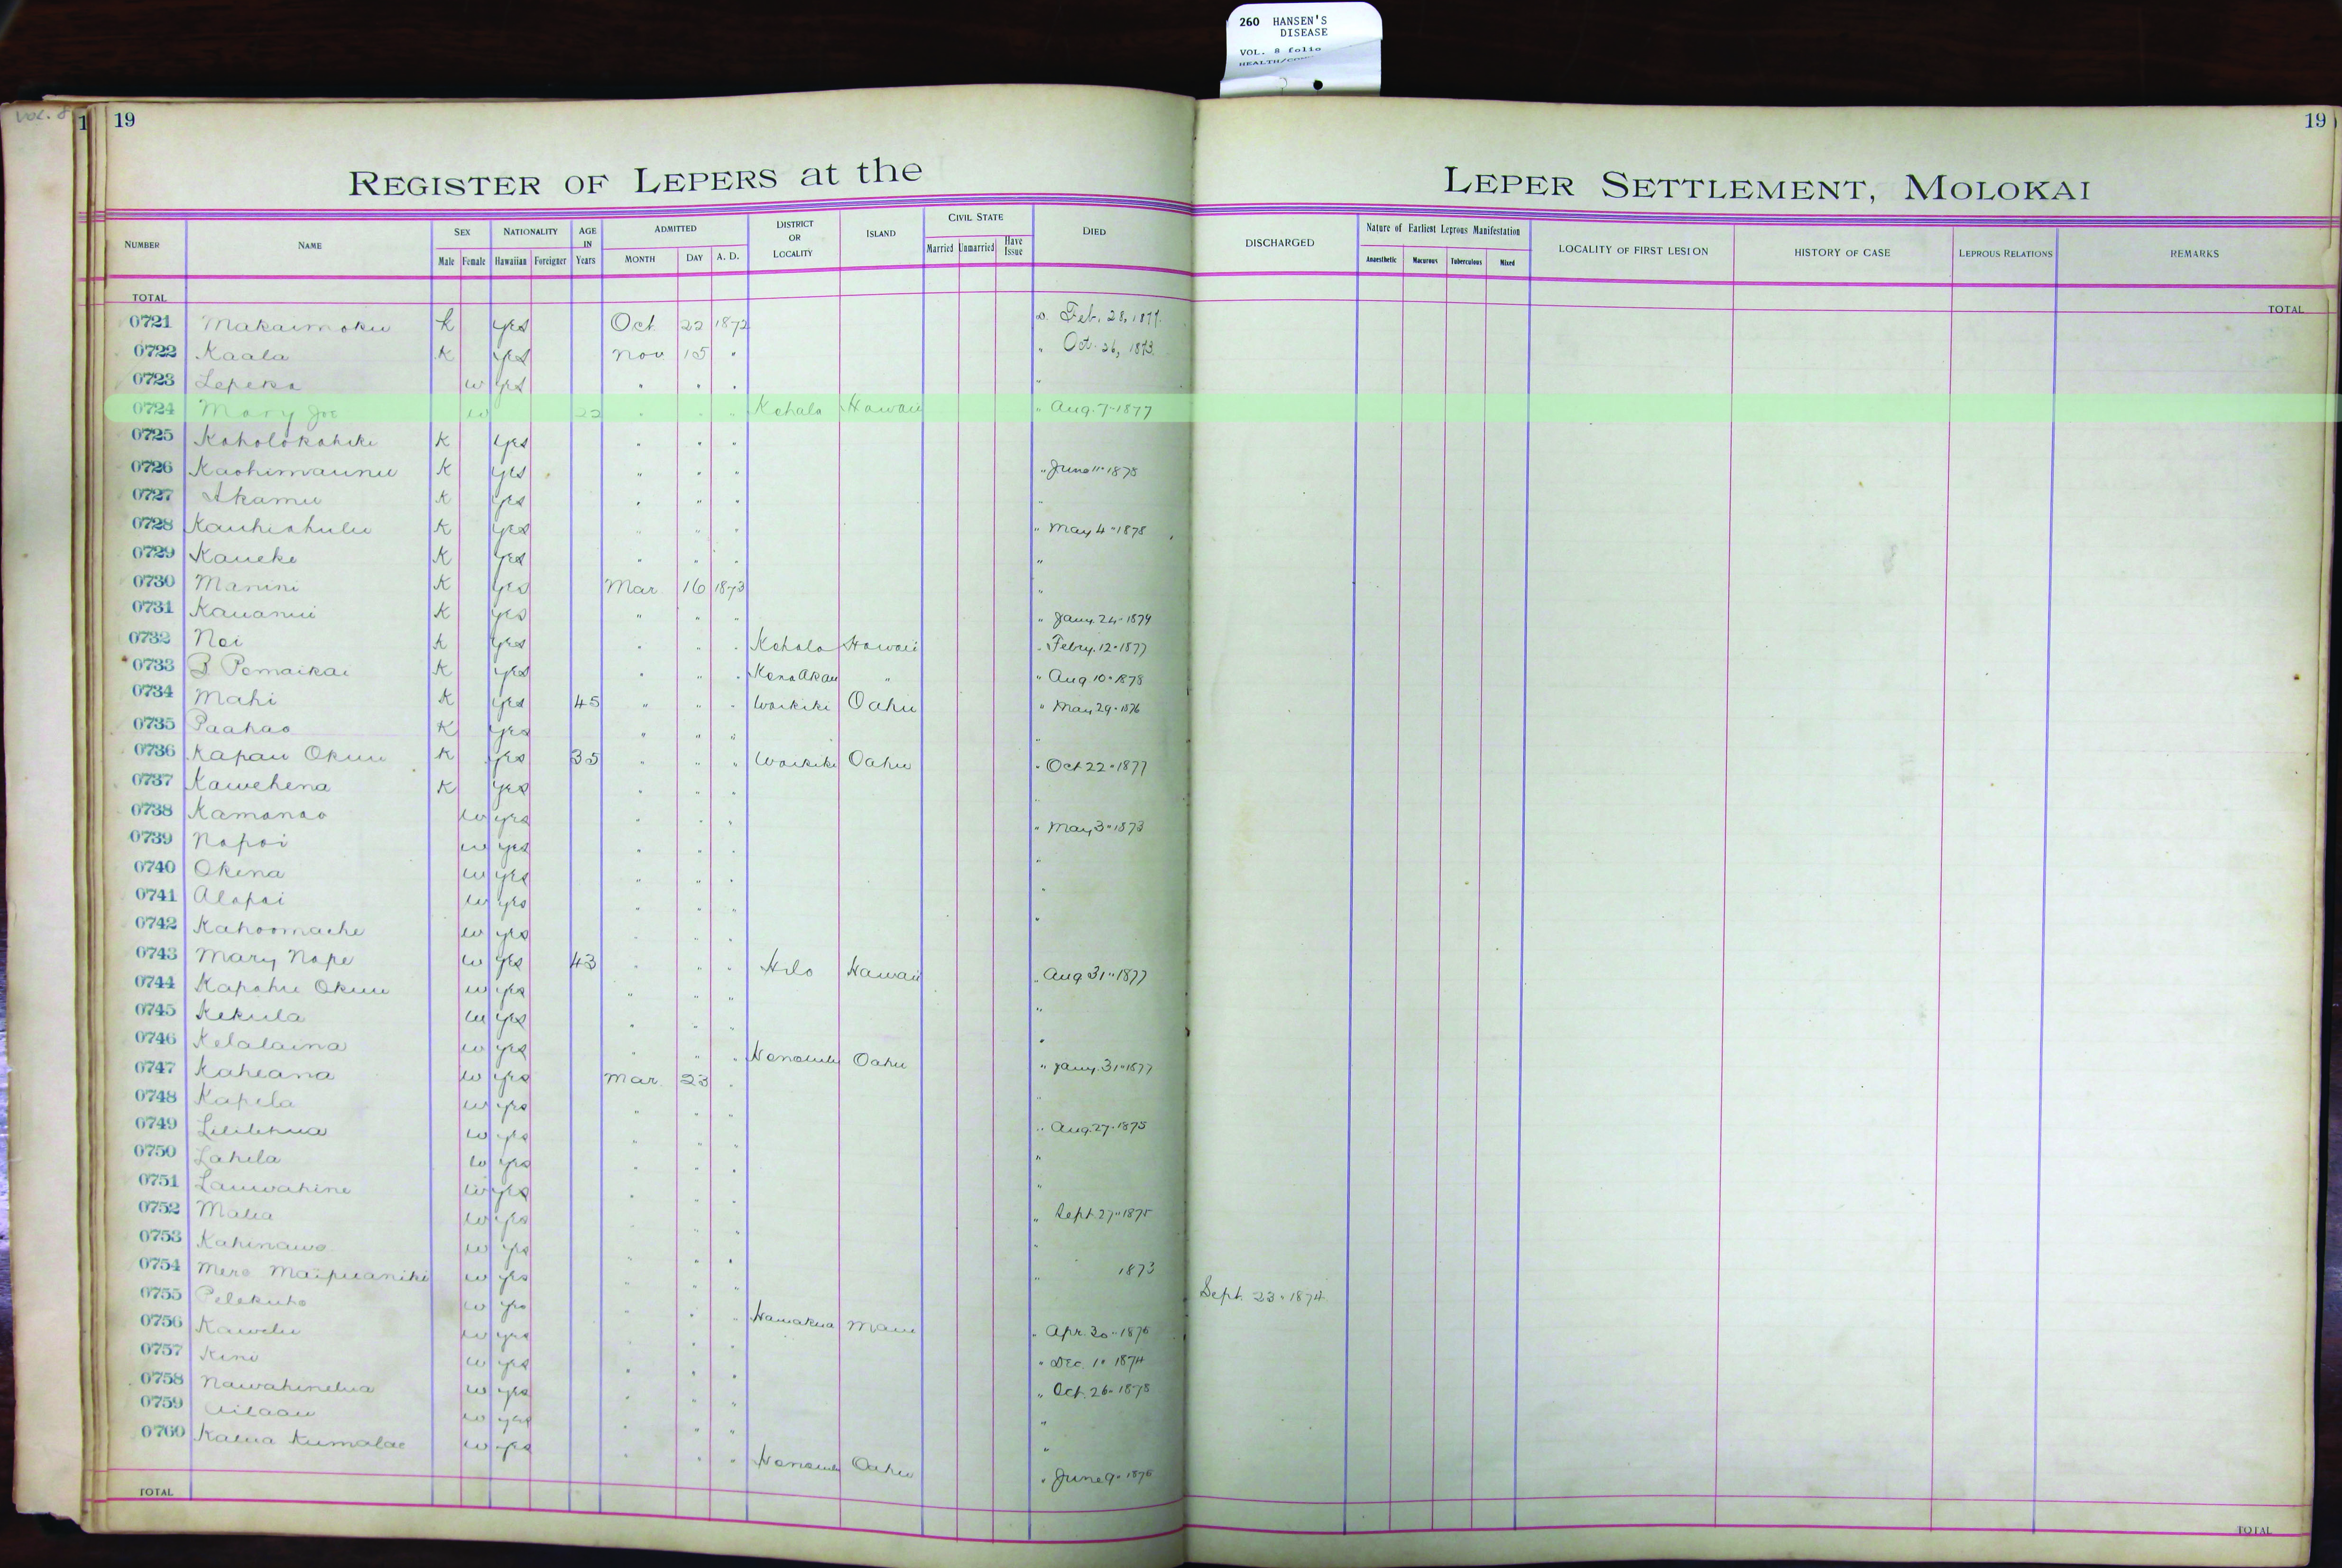 260 HANSEN'S
DISEASE
VOL. 8 folio
Vol. 8
1 19 19
REGISTER OF LEPERS at the LEPER SETTLEMENT, MOLOKAI
NUMBER NAME SEX Male Female NATIONALITY Hawaiian Foreigner AGE IN Years ADMITTED MONTH DAY A. D. DISTRICT OR LOCALITY ISLAND CIVIL STATE Married Unmarried Have Issue DIED DISCHARGED Nature of Earliest Leprous Manifestation Anaesthetic Macurous Tuberculous Mixed LOCALITY OF FIRST LESION HISTORY OF CASE LEPROUS RELATIONS REMARKS
TOTAL TOTAL
0721 Makaimoku k yes Oct 22 1872 Feb. 28, 1877.
0722 Kaala K yes Nov 15 " " Oct. 26, 1873.
0723 Lepeka w yes " " " "
0724 Mary Joe w 22 " " " Kohala Hawaii " Aug. 7-1877
0725 Koholokahiki K yes " " "
0726 Kaohimaunu K yes " " " " June 11-1878
0727 Akamu K yes " " " "
0728 Kauhiahulu K yes " " " " May 4-1878
0729 Kaueke K yes " " " "
0730 Manini K yes Mar 16 1873 "
0731 Kauanui K yes " " " " Jany. 24-1879
0732 Noi K yes " " " Kohala Hawaii " Febry. 12-1877
0733 B Pomaikai K yes " " " Kona Akau " " Aug 10-1878
0734 Mahi K yes 45 " " " Waikiki Oahu " May 29-1876
0735 Paahao K yes " " " "
0736 Kapau Okuu K yes 35 " " " Waikiki Oahu " Oct 22-1877
0737 Kawehena K yes " " " "
0738 Kamanao w yes " " " " May 3-1873
0739 Napoi w yes " " " "
0740 Okina w yes " " " "
0741 Alapai w yes " " " "
0742 Kahoomache w yes " " "
0743 Mary Nape w yes 43 " " " Hilo Hawaii " Aug 31-1877
0744 Kapahu Okuu w yes " " " "
0745 Kekula w yes " " " "
0746 Kelalaina w yes " " " Honolulu Oahu " Jany. 31-1877
0747 Kaheana w yes Mar. 23 " "
0748 Kapela w yes " " " " Aug. 27-1875
0749 Lililehua w yes " " " "
0750 Lahela w yes " " " "
0751 Lauwahine w yes " " " " Sept. 27-1875
0752 Malia w yes " " " "
0753 Kahinawe w yes " " " " 1873
0754 Mere Maipuaniki w yes " " " Sept. 23-1874
0755 Pelekuho w yes " " " Hamakua Maui " Apr. 30-1876
0756 Kawelu w yes " " " " Dec. 1-1874
0757 Kini w yes " " " " Oct. 26-1878
0758 Nawahinelua w yes " " " "
0759 Ailaau w yes " " " "
0760 Kalua Kumalae w yes " " Honolulu Oahu " June 9-1876
TOTAL TOTAL